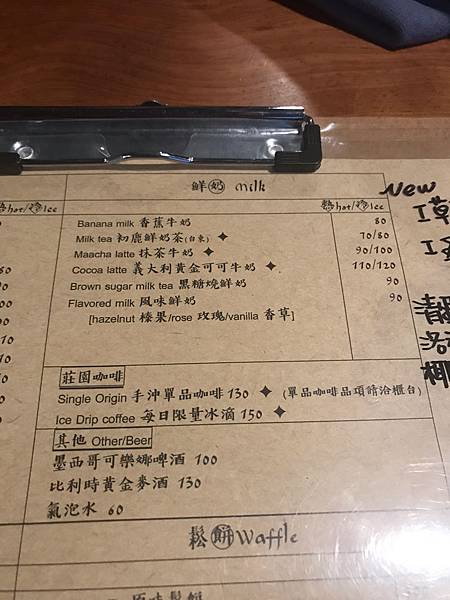 鮮奶 milk
hot/冷 Ice
熱hot/冷Ice
New
Banana milk 香蕉牛奶 80
Milk tea 初鹿鮮奶茶(台東) ✦ 70/80
Maacha latte 抹茶牛奶 ✦ 90/100
Cocoa latte 義大利黃金可可牛奶 ✦ 110/120
Brown sugar milk tea 黑糖燒鮮奶 90
Flavored milk 風味鮮奶 90
[hazelnut 榛果/rose 玫瑰/vanilla 香草]
莊園咖啡
Single Origin 手沖單品咖啡 130 ✦ (單品咖啡品項請洽櫃台)
Ice Drip coffee 每日限量冰滴 150 ✦
其他 Other/Beer
墨西哥可樂娜啤酒 100
比利時黃金麥酒 130
氣泡水 60
鬆餅 Waffle